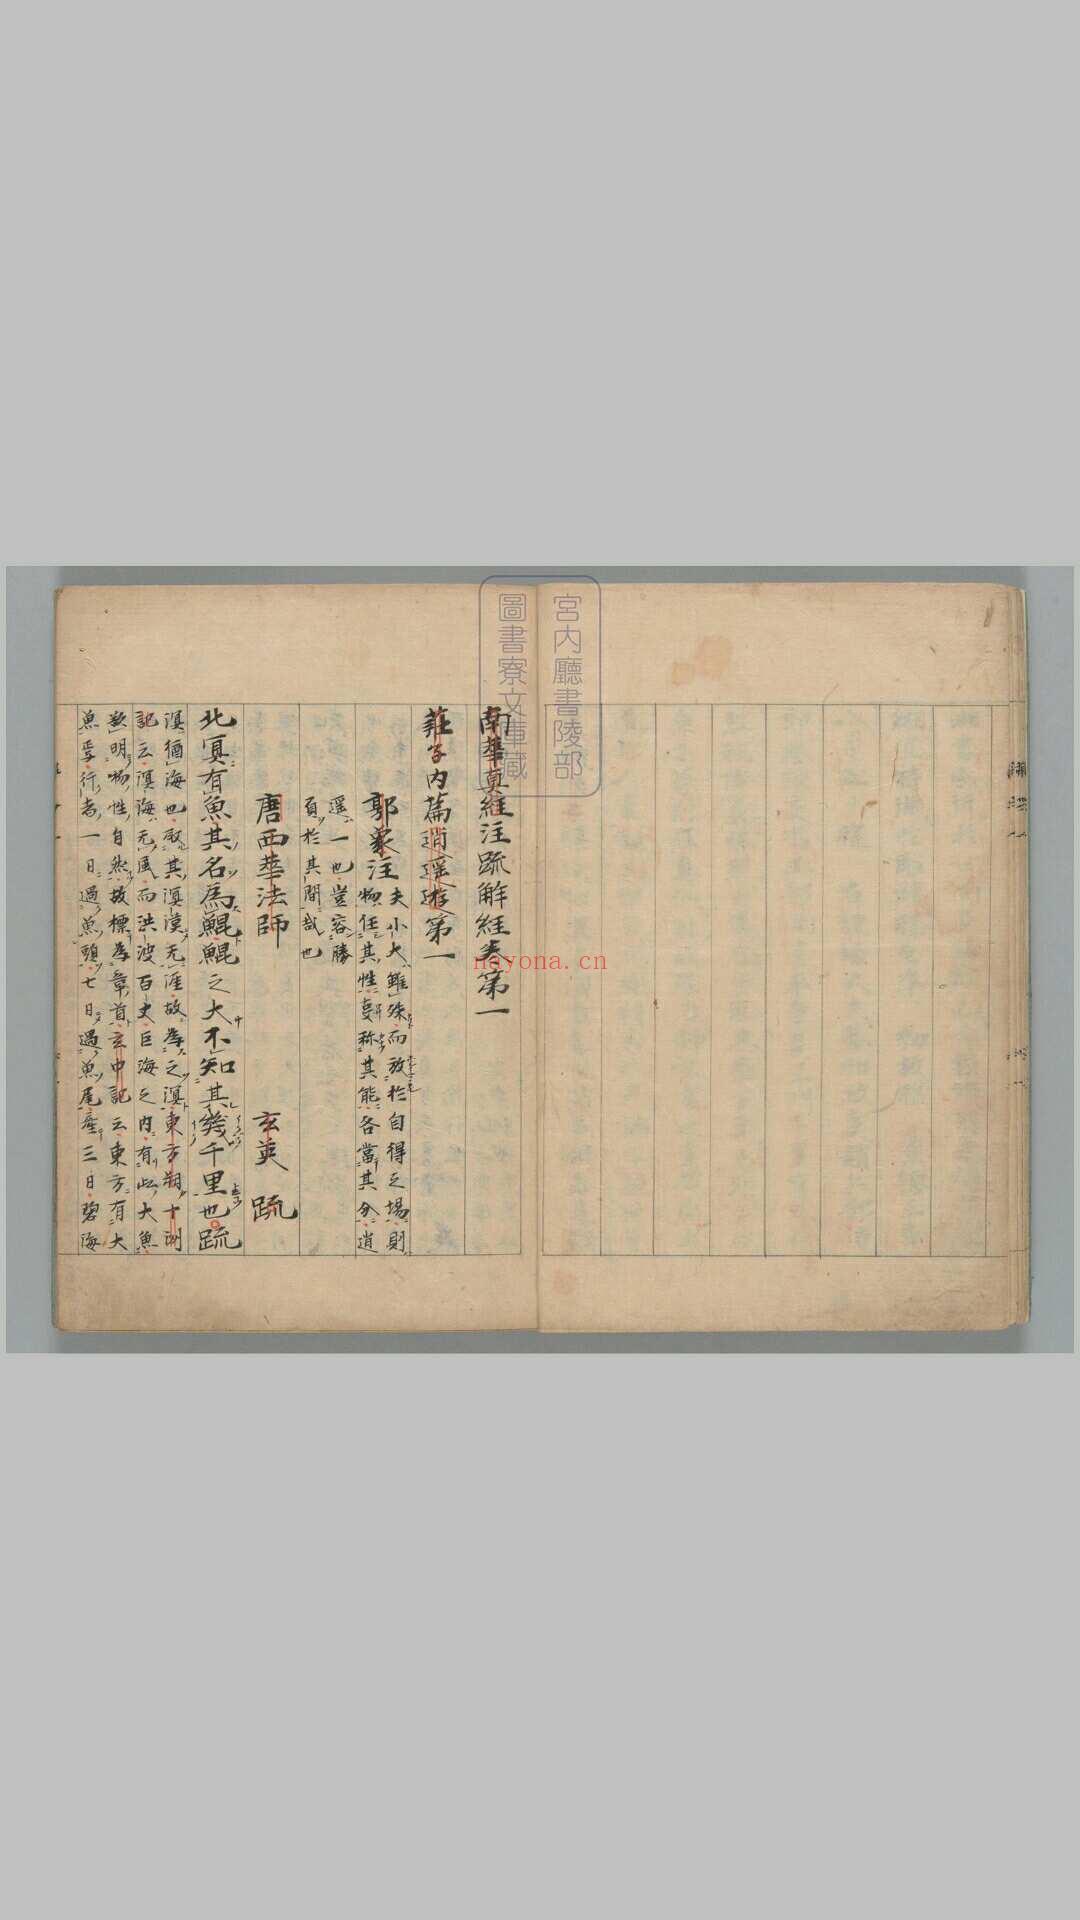 宮内廳書陵部
圖書寮文庫藏
南華真經注疏解經卷第一
莊子内篇逍遥遊第一
郭象注
夫小大雖殊而放於自得之場則
物任其性㕝称其能各當其分逍
遥一也豈容勝
負於其間哉也
唐西華法師
玄英
疏
北冥有魚其名為鯤鯤之大不知其幾千里也疏
溟猶海也取其溟漠无涯故為之溟東方朔十洲
記云溟海无風而洪波百丈巨海之内有此大魚
欲明物性自然故標為章首玄中記云東方有大
魚焉行者一日過魚頭七日過魚尾産三日碧海
nayona.cn